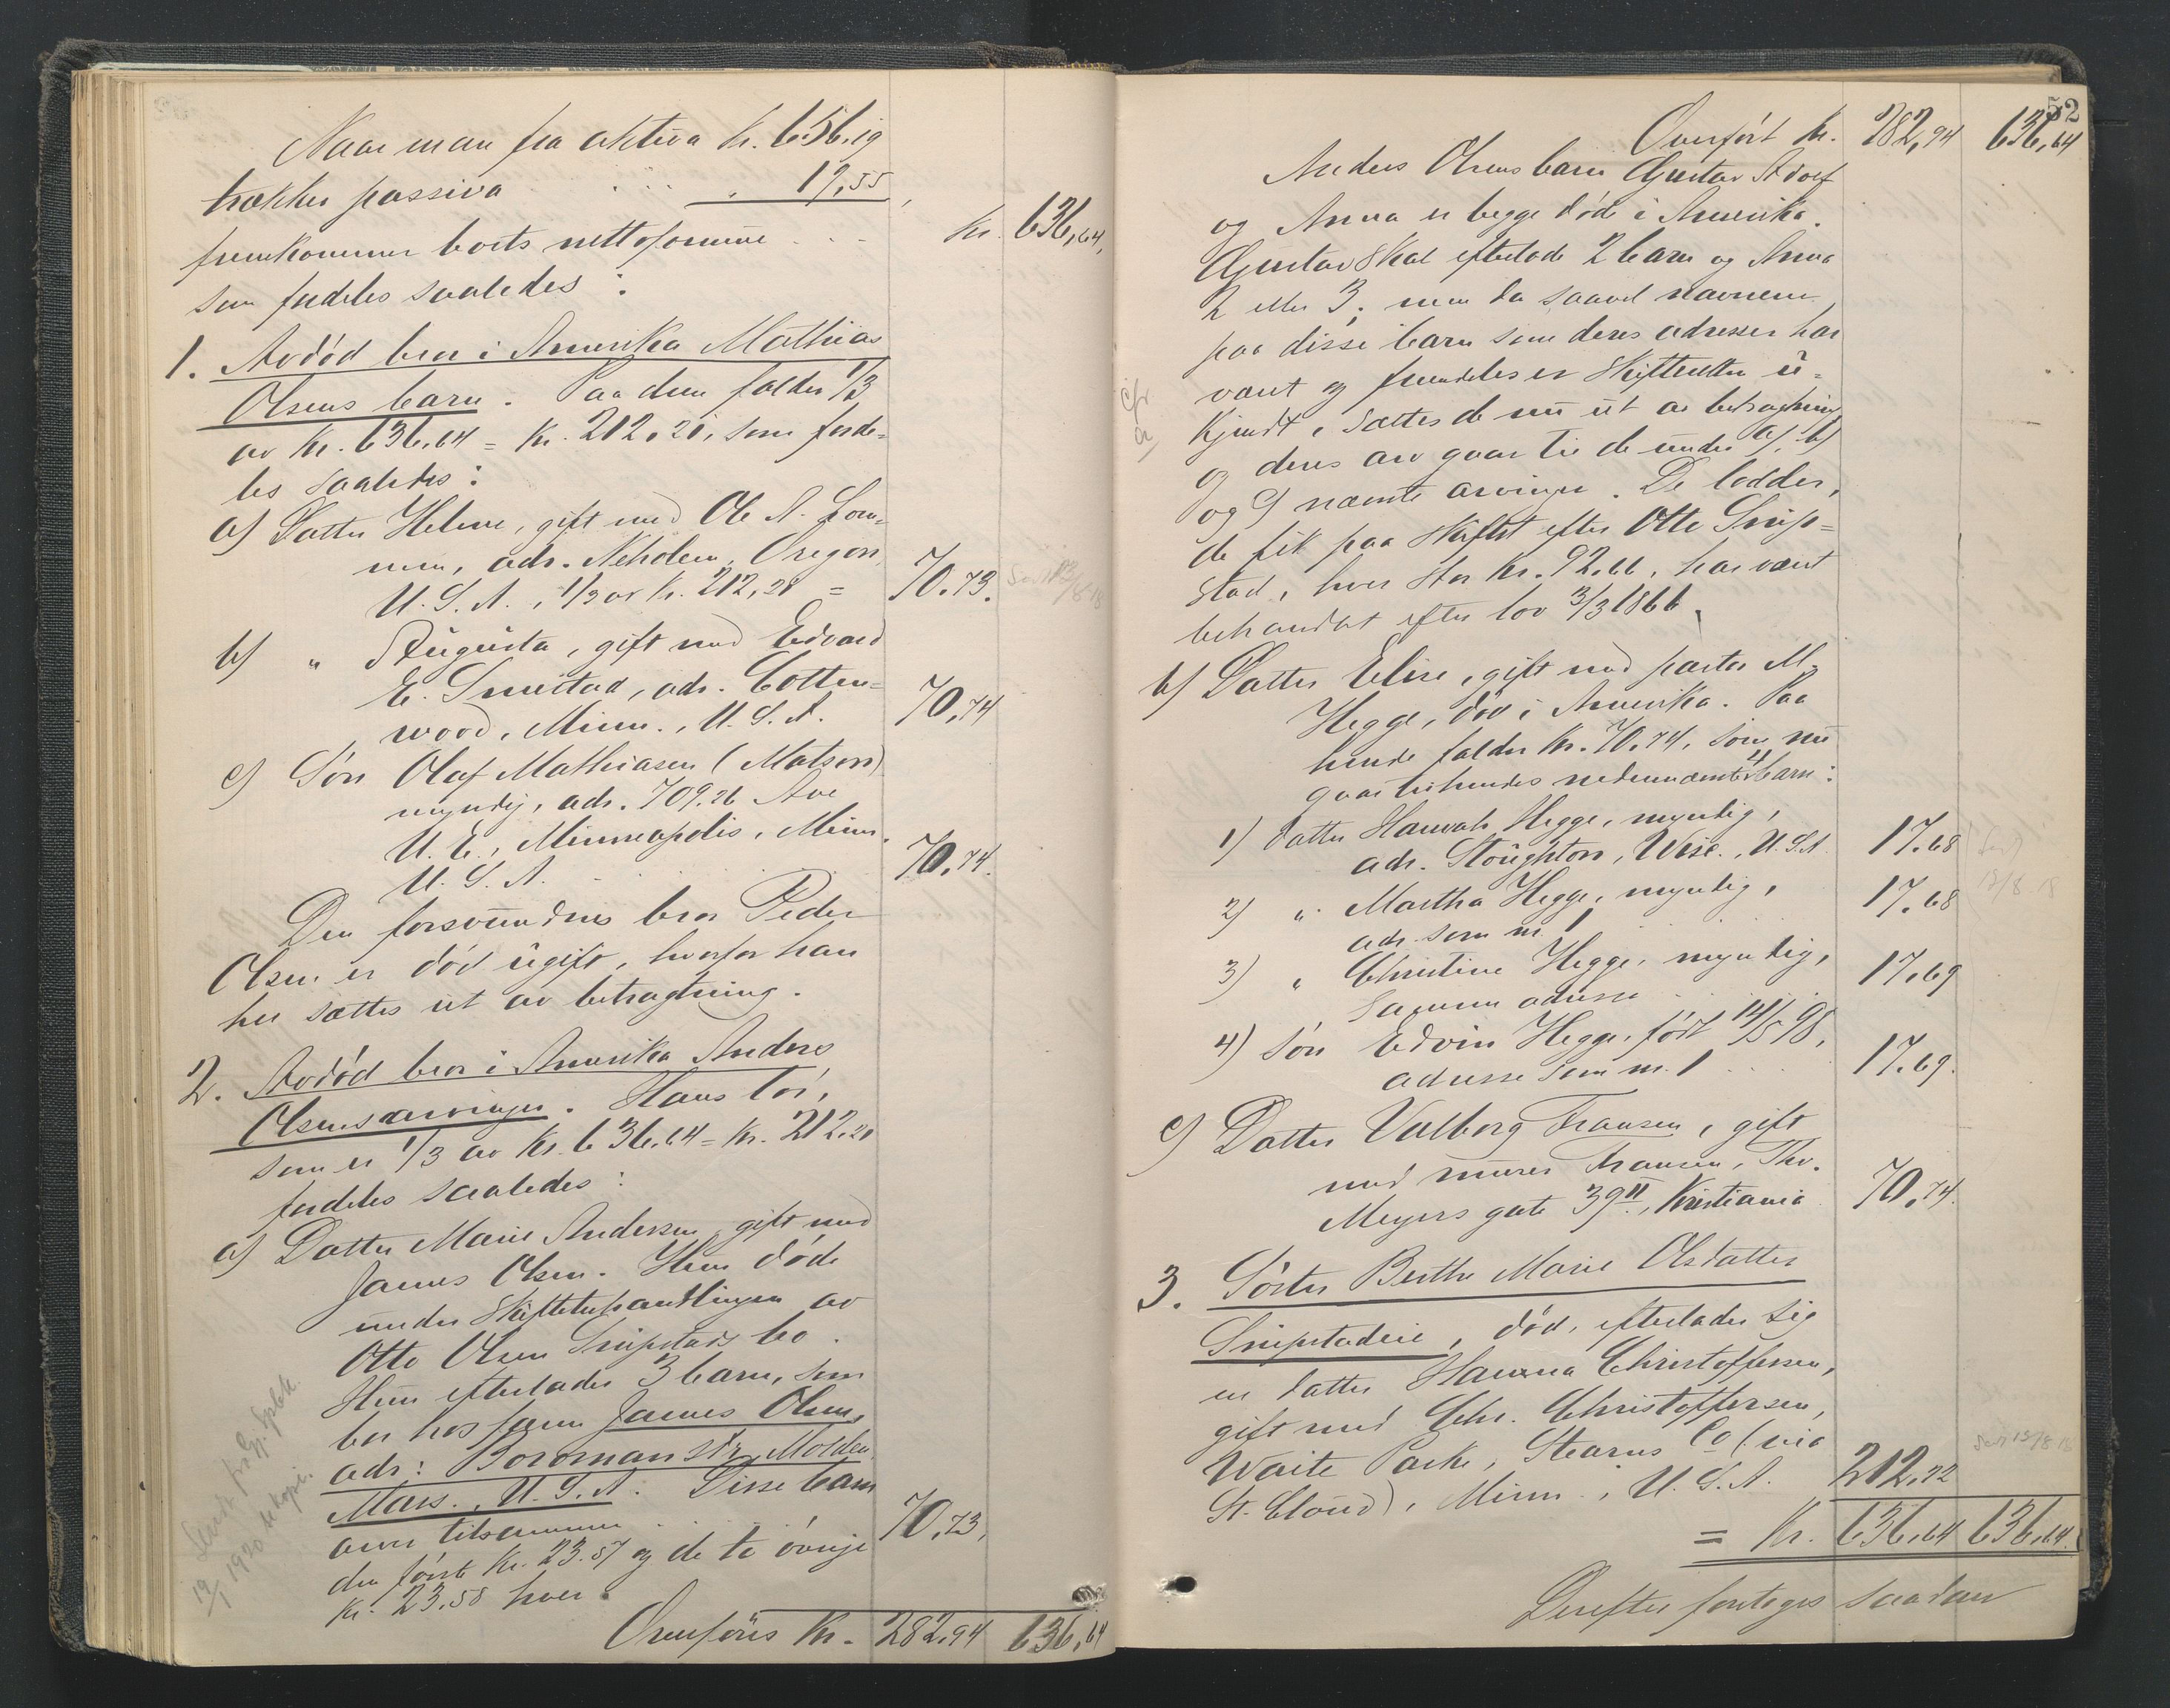 Naar man fra aktiva kr. 656.19
trækker passiva " 19,55
fremkommer boets nettoformue kr. 636,64,
som fordeles saaledes:
1. Avdød bror i Amerika Mathias
Olsens barn. Paa dem falder 1/3
av kr. 636,64 = kr. 212.21, som forde-
les saaledes:
a) Datter Helene, gift med Ole A.
adr. Nehalem, Oregon,
U.S.A., 1/3 av kr. 212,21 = 70.73.
b) " Augusta, gift med Edvard
E. Smestad, adr. Cotton-
wood, Minn., U.S.A. 70,74
c) Søn Olaf Mathiasen (Matson)
myndig, adr. 709.26 Ave
N.E., Minneapolis, Minn.
U.S.A. 70,74.
Den forsvundne bror Peder
Olsen er død ugift, hvorfor han
her sættes ut av betragtning.
2. Avdød bror i Amerika Anders
Olsens arvinger. Hans lod,
som er 1/3 av kr. 636.64 = kr. 212.21
fordeles saaledes:
a) Datter Marie Andersen, gift med
James Olsen. Hun døde
under skiftebehandlingen av
Otto Olsen Snipstads bo.
Hun efterlader 3 barn, som
bor hos faren James Olsen,
adr: Boroman Str. Molden
Mass., U.S.A. Disse barn
arver tilsammen 70,73,
den første kr. 23.57 og de to øvrige
kr. 23.58 hver.
Overføres kr. 282.94 636,64
19/1 1920
52
Overført kr. 282,94 636,64
Anders Olsens barn Gustav Adolf
og Anna er begge døde i Amerika.
Gustav skal efterlade 2 barn og Anna
2 eller 3; men da saavel navnene
paa disse barn som deres adresser har
været og fremdeles er skifteretten u-
kjendt, sættes de nu ut av betragtning
og deres arv gaar til de under a), b)
og c) nævnte arvinger. De lodder,
de fik paa skiftet efter Otto Snip-
stad, hver stor kr. 92.66, har været
behandlet efter lov 3/3 1866.
b) Datter Elise, gift med pastor M.
Hegge, død i Amerika. Paa
hende falder kr. 70.74, som nu
gaar til hendes nedennævnte 4 barn:
1) datter Hannah Hegge, myndig,
adr. Stoughton, Wisc., U.S.A. 17.68
2) " Martha Hegge, myndig,
adr. som nr. 1 17.68
3) " Christine Hegge, myndig,
samme adresse 17.69
4) søn Edvin Hegge, født 14/5 98,
adresse som nr. 1 17.69.
c) Datter Valborg Fransen, gift
med murer Fransen, Thv.
Meyers gate 39 II, Kristiania 70,74.
3. Søster Berthe Marie Olsdatter
Snipstadeie, død, efterlader sig
en datter Hanna Christoffersen,
gift med Chr. Christoffersen,
Waite Park, Stearns Co (via
St. Cloud), Minn., U.S.A. 212,72
= kr. 636,64 636,64.
Derefter foretoges saadan